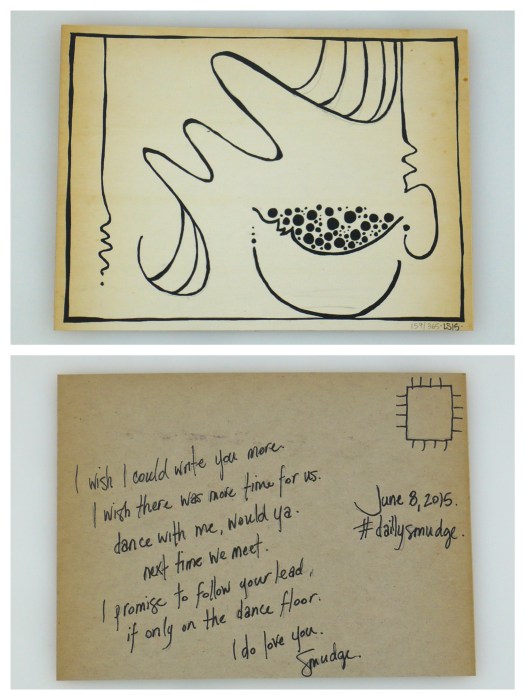 159/365 LS15
I wish I could write you more.
I wish there was more time for us.
dance with me, would ya.
next time we meet.
I promise to follow your lead,
if only on the dance floor.
I do love you.
Smudge.
June 8, 2015.
#dailysmudge.